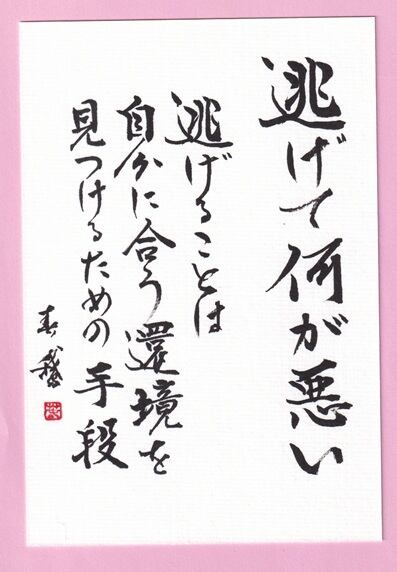 逃げて何が悪い
逃げることは
自分に合う還境を
見つけるための手段